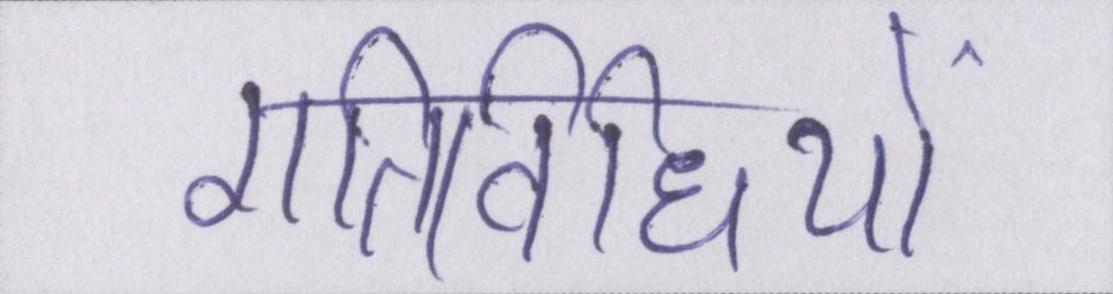 गतिविधियों